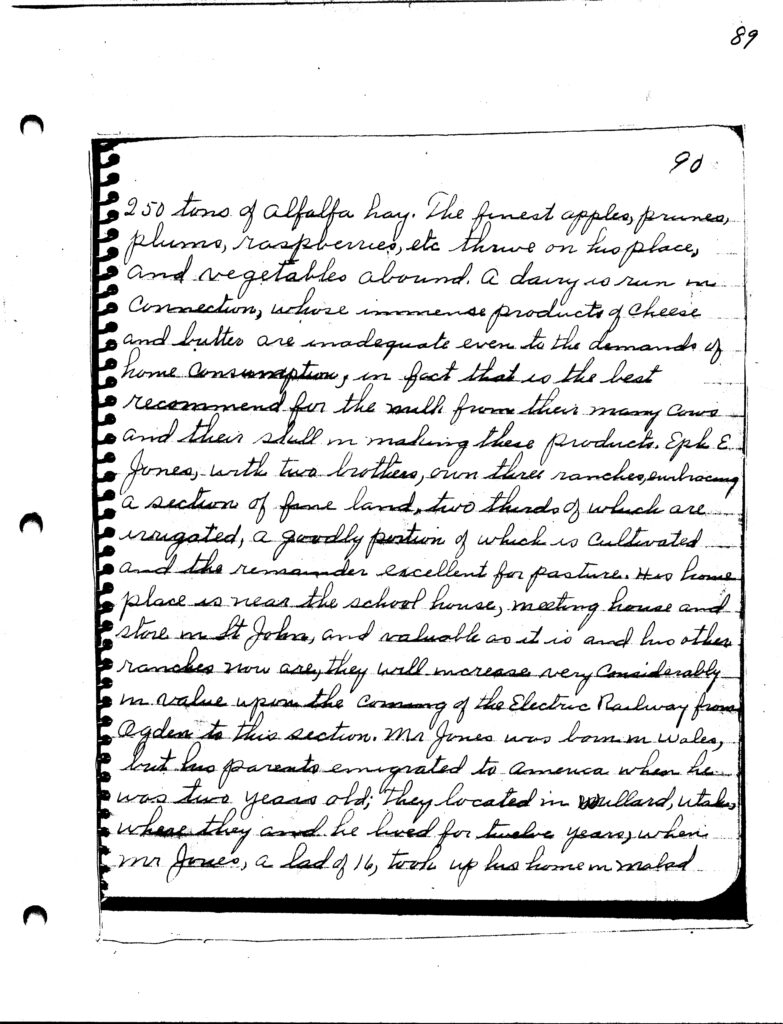 89
90
250 tons of alfalfa hay. The finest apples, prunes,
plums, raspberries, etc thrive on his place,
and vegetables abound. A dairy is run in
connection, whose immense products of cheese
and butter are inadequate even to the demands of
home consumption, in fact that is the best
recommend for the milk from their many cows
and their skill in making these products. Eph E.
Jones, with two brothers, own three ranches, embracing
a section of fine land, two thirds of which are
irrigated, a goodly portion of which is cultivated
and the remainder excellent for pasture. His home
place is near the school house, meeting house and
store in St John, and valuable as it is and his other
ranches now are, they will increase very considerably
in value upon the coming of the Electric Railway from
Ogden to this section. Mr Jones was born in Wales,
but his parents emigrated to America when he
was two years old; they located in Willard, Utah,
where they and he lived for twelve years, when
Mr Jones, a lad of 16, took up his home in Malad